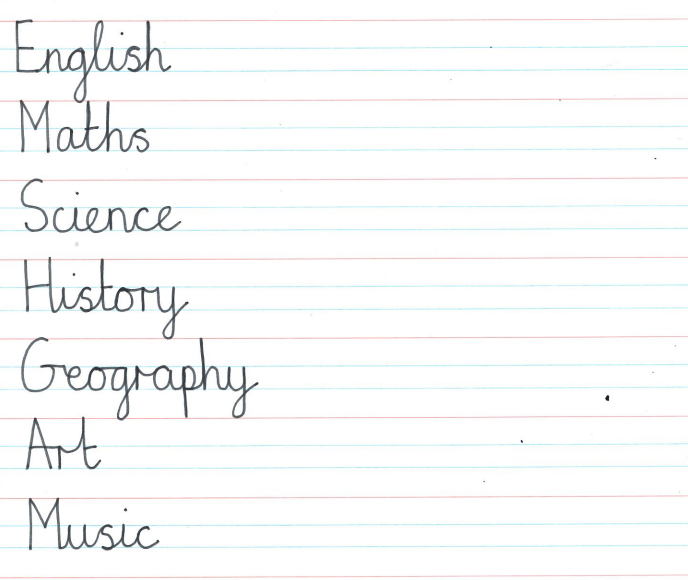 English
Maths
Science
History
Geography
Art
Music